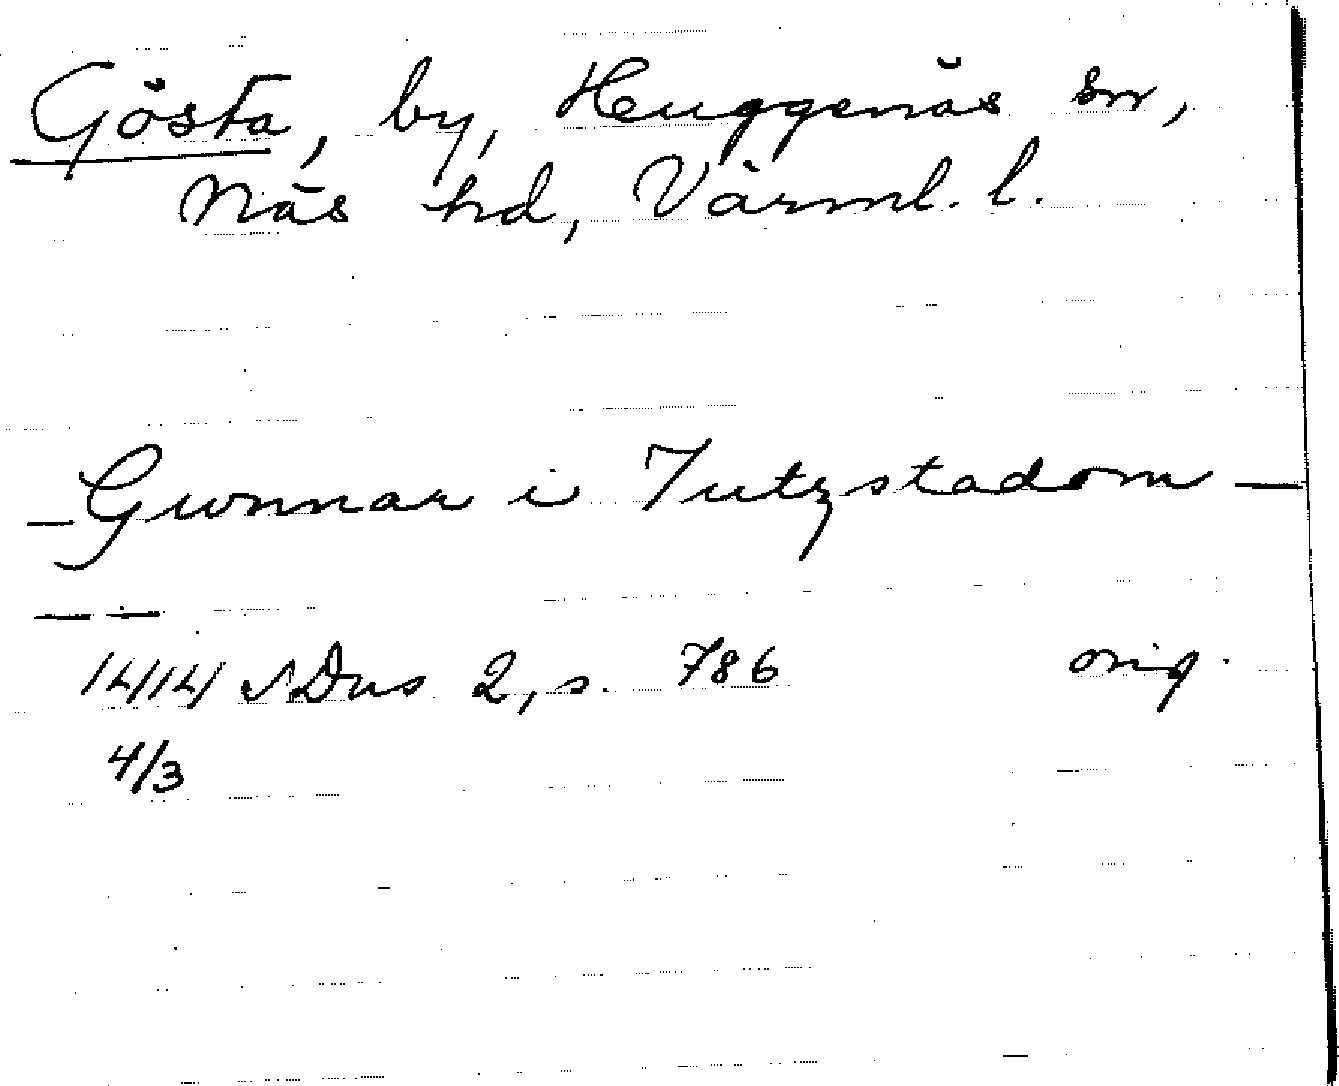 Gösta, by, Huggenäs sn,
Näs hd, Värml. l.
— Gunnar i Jutzstadom —
— —
1414 SDns 2, s. 786 orig.
4/3